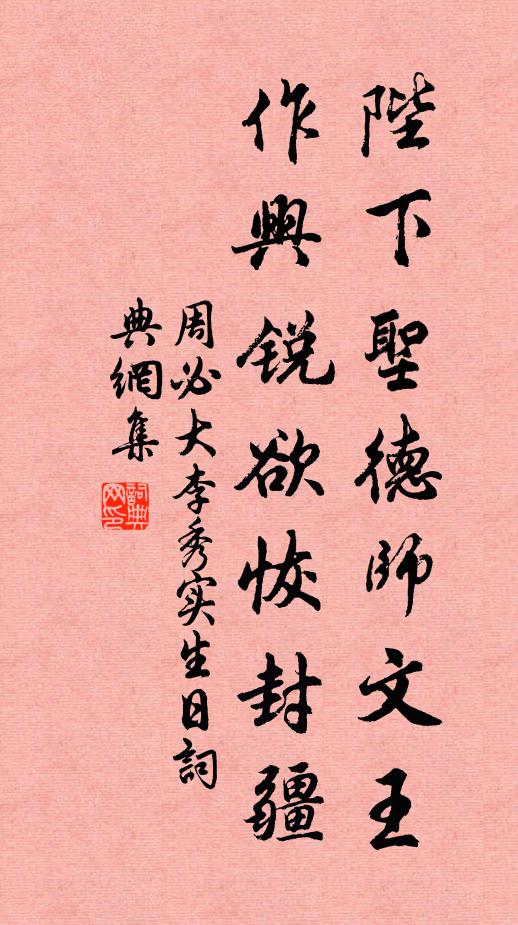 陛下聖德師文王
作興銳欲恢封疆
周必大李秀实生日詞
典網集
詞典网印